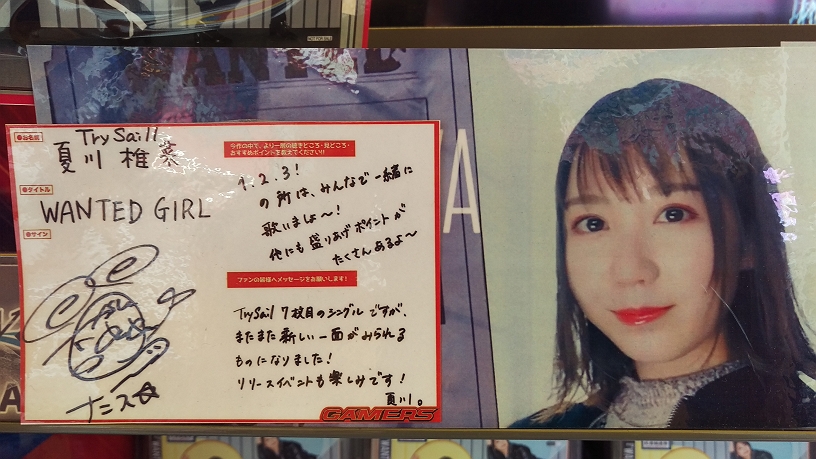 NOT FOR SALE
WANTED
●お名前
TrySail
夏川 椎菜
●タイトル
WANTED GIRL
●サイン
ナンス
今作の中で、より一層の聴きどころ・見どころ・
おすすめポイントを教えてください!!
1.2.3!
の所は、みんなで一緒に
歌いましょ〜!
他にも盛りあげポイントが
たくさんあるよ〜
ファンの皆様へメッセージをお願いします!
TrySail 7枚目のシングルですが、
またまた新しい一面がみられる
ものになりました!
リリースイベントも楽しみです!
夏川。
GAMERS